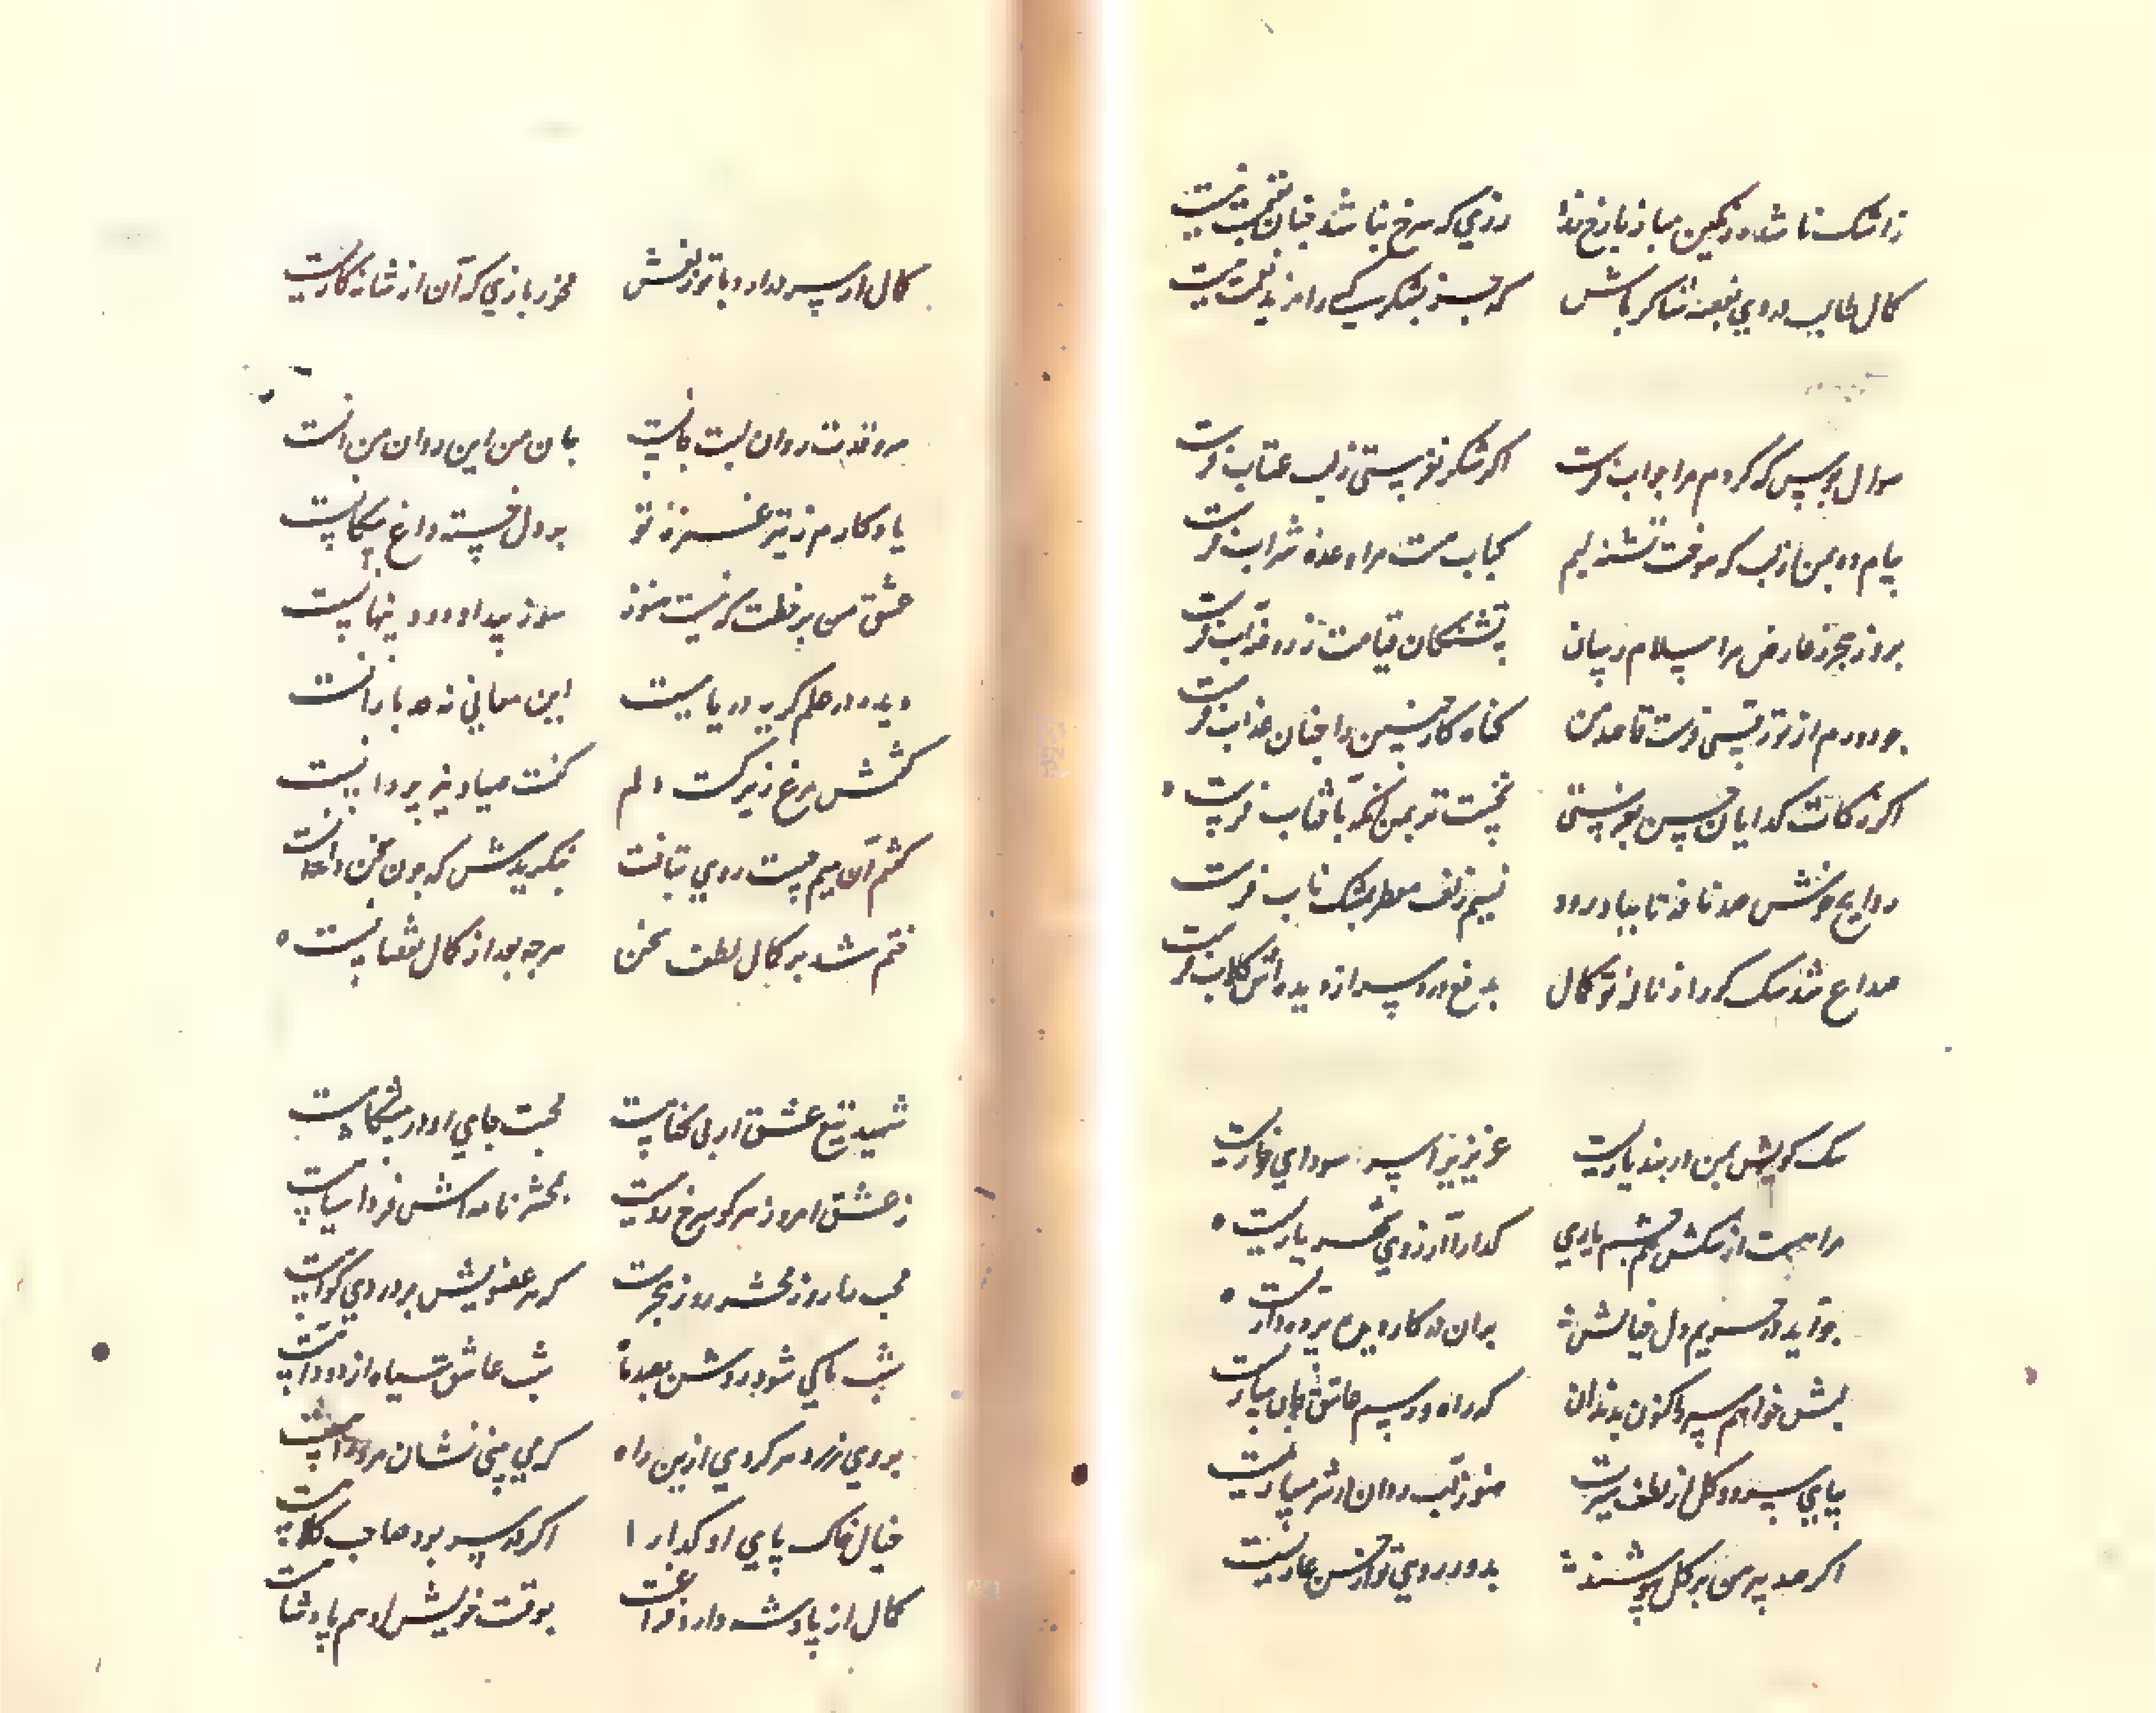 ز اشک نا شده رنگین مباز با رخ ما روزی که سرخ نباشد چنان بقیمت نیست
کمال طالب دردی بغصه شاکر باش که جز بشکر کسی را مزید نعمت نیست
سوال بوس که کردم مرا جواب فرست اگر شکر نفرستی ز لب عتاب فرست
پیام ده بمن از لب که سوخت تشنه لبم کباب هست مرا وعده شراب فرست
بروز هجر ز عارض مرا سلام رسان به تشنگان قیامت ز روضه آب فرست
چو دورم از تو رقیبی فرست قاصد من گناه کار چنین را چنان عذاب فرست
اگر زکات گدایان حسن بفرستی نخست تو بمن آنگه بآفتاب فرست
روایح خوشش صد نافه تا بباد رود نسیم زلف معطر بمشک ناب فرست
صداع شد سگ کو را ز ناله تو کمال بدفع درد سر از دیده اش گلاب فرست
سگ کویش بمن در بند یاریست عزیزی را سر سودای خواریست
مرا هست از سگش هم چشم یاری گدا را آرزوی شهریاریست
چو آید در حریم دل خیالش بر آن در کار دیده پرده داریست
لبش خواهم سپرد اکنون بدندان که راه و رسم عاشق جان سپاریست
بپای سرو و گل از لطف سیرت هنوز آب روان در شرمساریست
اگر صد پیرهن بر گل بپوشند بدور روی تو از حسن عاریست
کمال ار سر ندارد با تو زلفش مخور بازی که آن از شانه کاریست
سرو قدت روان لبت جانست جان من این روان من آنست
یادگارم ز تیر غمزه تو بر دل خسته داغ پیکانست
عشق من بر خطت که نیست هنوز سوز پیدا و درد پنهانست
دیده در علم گریه دریاییست این معانی نه صد بارانست
گفتمش مرغ زیرکست دلم گفت صیاد نیز پردانست
گفتم آن هم چست روی بتافت بنگریدش که چون سخن دانست
ختم شد بر کمال لطف سخن هرچه بعد از کمال نقصانست
شهید تیغ عشق ار بی گناهست بجنت جای او در پیشگاهست
ز عشق امروز هر کو سرخ رو نیست بمحشر نامه اش فردا سیاهست
محب را روز محشر روز هجرست که هر عضویش بر دردی گواهست
شب ما کی شود روشن بصد ماه شب عاشق سیاه از دود آهست
بروی زرد هر گردی ازین راه که می بینی نشان مرد راهست
خیال خاک پای او گدا را اگر در سر بود صاحب کلاهست
کمال از پادشه دارد فراغت بوقت خویش او هم پادشاهست